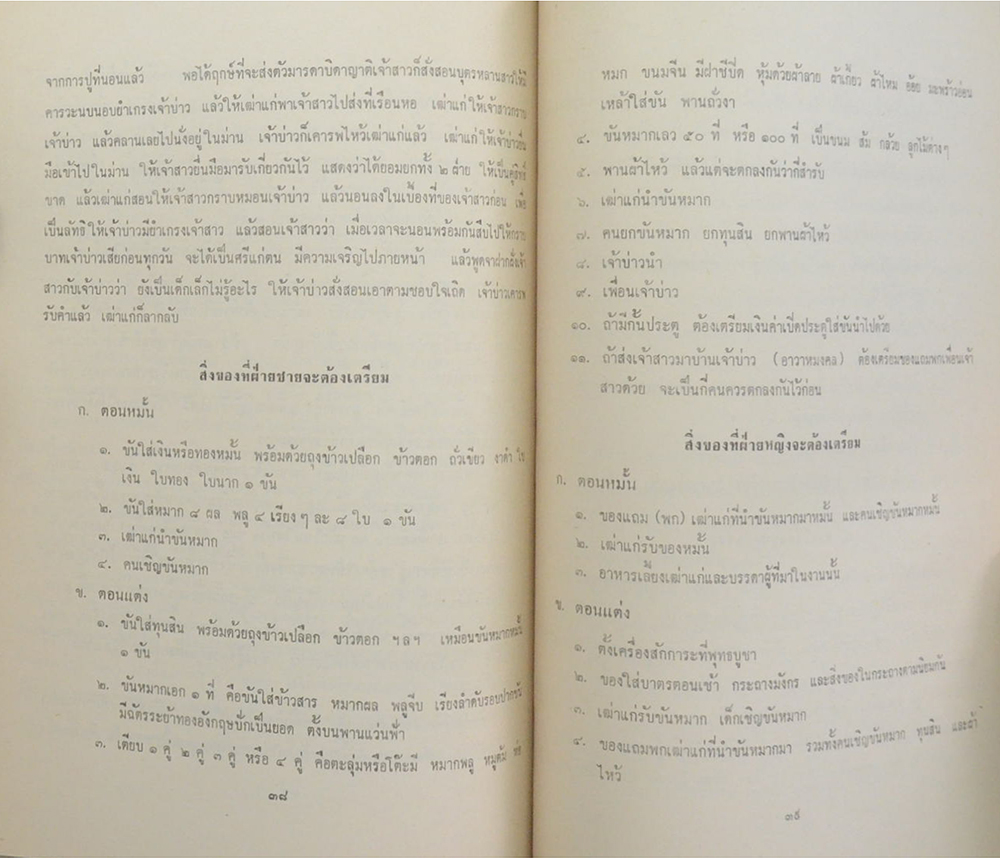 จากการปูที่นอนแล้ว พอได้ฤกษ์ที่จะส่งตัวมารดาบิดาญาติเจ้าสาวก็สั่งสอนบุตรหลานสาวให้มี
คารวะนบนอบยำเกรงเจ้าบ่าว แล้วให้เฒ่าแก่พาเจ้าสาวไปส่งที่เรือนหอ เฒ่าแก่ให้เจ้าสาวกราบ
เจ้าบ่าว แล้วคลานเลยไปนั่งอยู่ในม่าน เจ้าบ่าวก็เคารพไหว้เฒ่าแก่แล้ว เฒ่าแก่ให้เจ้าบ่าวยื่น
มือเข้าไปในม่าน ให้เจ้าสาวยื่นมือมารับเกี่ยวกันไว้ แสดงว่าได้ยอมยกทั้ง ๒ ฝ่าย ให้เป็นคู่สิทธิ์
ขาด แล้วเฒ่าแก่สอนให้เจ้าสาวกราบหมอนเจ้าบ่าว แล้วนอนลงในเบื้องที่ของเจ้าสาวก่อน เพื่อ
เป็นลัทธิให้เจ้าบ่าวมียำเกรงเจ้าสาว แล้วสอนเจ้าสาวว่า เมื่อเวลาจะนอนพร้อมกันสืบไปให้กราบ
บาทเจ้าบ่าวเสียก่อนทุกวัน จะได้เป็นศรีแก่ตน มีความเจริญไปภายหน้า แล้วพูดจาฝากฝังเจ้า
สาวกับเจ้าบ่าวว่า ยังเป็นเด็กเล็กไม่รู้อะไร ให้เจ้าบ่าวสั่งสอนเอาตามชอบใจเถิด เจ้าบ่าวเคารพ
รับคำแล้ว เฒ่าแก่ก็ลากลับ
สิ่งของที่ฝ่ายชายจะต้องเตรียม
ก. ตอนหมั้น
๑. ขันใส่เงินหรือทองหมั้น พร้อมด้วยถุงข้าวเปลือก ข้าวตอก ถั่วเขียว งาดำ ใบ
เงิน ใบทอง ใบนาก ๑ ขัน
๒. ขันใส่หมาก ๘ ผล พลู ๔ เรียงๆ ละ ๘ ใบ ๑ ขัน
๓. เฒ่าแก่นำขันหมาก
๔. คนเชิญขันหมาก
ข. ตอนแต่ง
๑. ขันใส่ทุนสิน พร้อมด้วยถุงข้าวเปลือก ข้าวตอก ฯลฯ เหมือนขันหมากหมั้น
๑ ขัน
๒. ขันหมากเอก ๑ ที่ คือขันใส่ข้าวสาร หมากผล พลูจีบ เรียงลำดับรอบปากขัน
มีฉัตรระย้าทองอังกฤษปักเป็นยอด ตั้งบนพานแว่นฟ้า
๓. เตียบ ๑ คู่ ๒ คู่ ๓ คู่ หรือ ๔ คู่ คือตะลุ่มหรือโต๊ะมี หมากพลู หมูต้ม ห่อ
๓๘
หมก ขนมจีน มีฝาชีปิด หุ้มด้วยผ้าลาย ผ้าเกี้ยว ผ้าไหม อ้อย มะพร้าวอ่อน
เหล้าใส่ขัน พานถั่วงา
๔. ขันหมากเลว ๕๐ ที่ หรือ ๑๐๐ ที่ เป็นขนม ส้ม กล้วย ลูกไม้ต่างๆ
๕. พานผ้าไหว้ แล้วแต่จะตกลงกันว่ากี่สำรับ
๖. เฒ่าแก่นำขันหมาก
๗. คนยกขันหมาก ยกทุนสิน ยกพานผ้าไหว้
๘. เจ้าบ่าวนำ
๙. เพื่อนเจ้าบ่าว
๑๐. ถ้ามีกั้นประตู ต้องเตรียมเงินค่าเปิดประตูใส่ขันนำไปด้วย
๑๑. ถ้าส่งเจ้าสาวมาบ้านเจ้าบ่าว (อาวาหมงคล) ต้องเตรียมของแถมพกเพื่อนเจ้า
สาวด้วย จะเป็นกี่คนควรตกลงกันไว้ก่อน
สิ่งของที่ฝ่ายหญิงจะต้องเตรียม
ก. ตอนหมั้น
๑. ของแถม (พก) เฒ่าแก่ที่นำขันหมากมาหมั้น และคนเชิญขันหมากหมั้น
๒. เฒ่าแก่รับของหมั้น
๓. อาหารเลี้ยงเฒ่าแก่และบรรดาผู้ที่มาในงานนั้น
ข. ตอนแต่ง
๑. ตั้งเครื่องสักการะที่พุทธบูชา
๒. ของใส่บาตรตอนเช้า กระถางมังกร และสิ่งของในกระถางตามนิยมกัน
๓. เฒ่าแก่รับขันหมาก เด็กเชิญขันหมาก
๔. ของแถมพกเฒ่าแก่ที่นำขันหมากมา รวมทั้งคนเชิญขันหมาก ทุนสิน และผ้า
ไหว้
๓๙